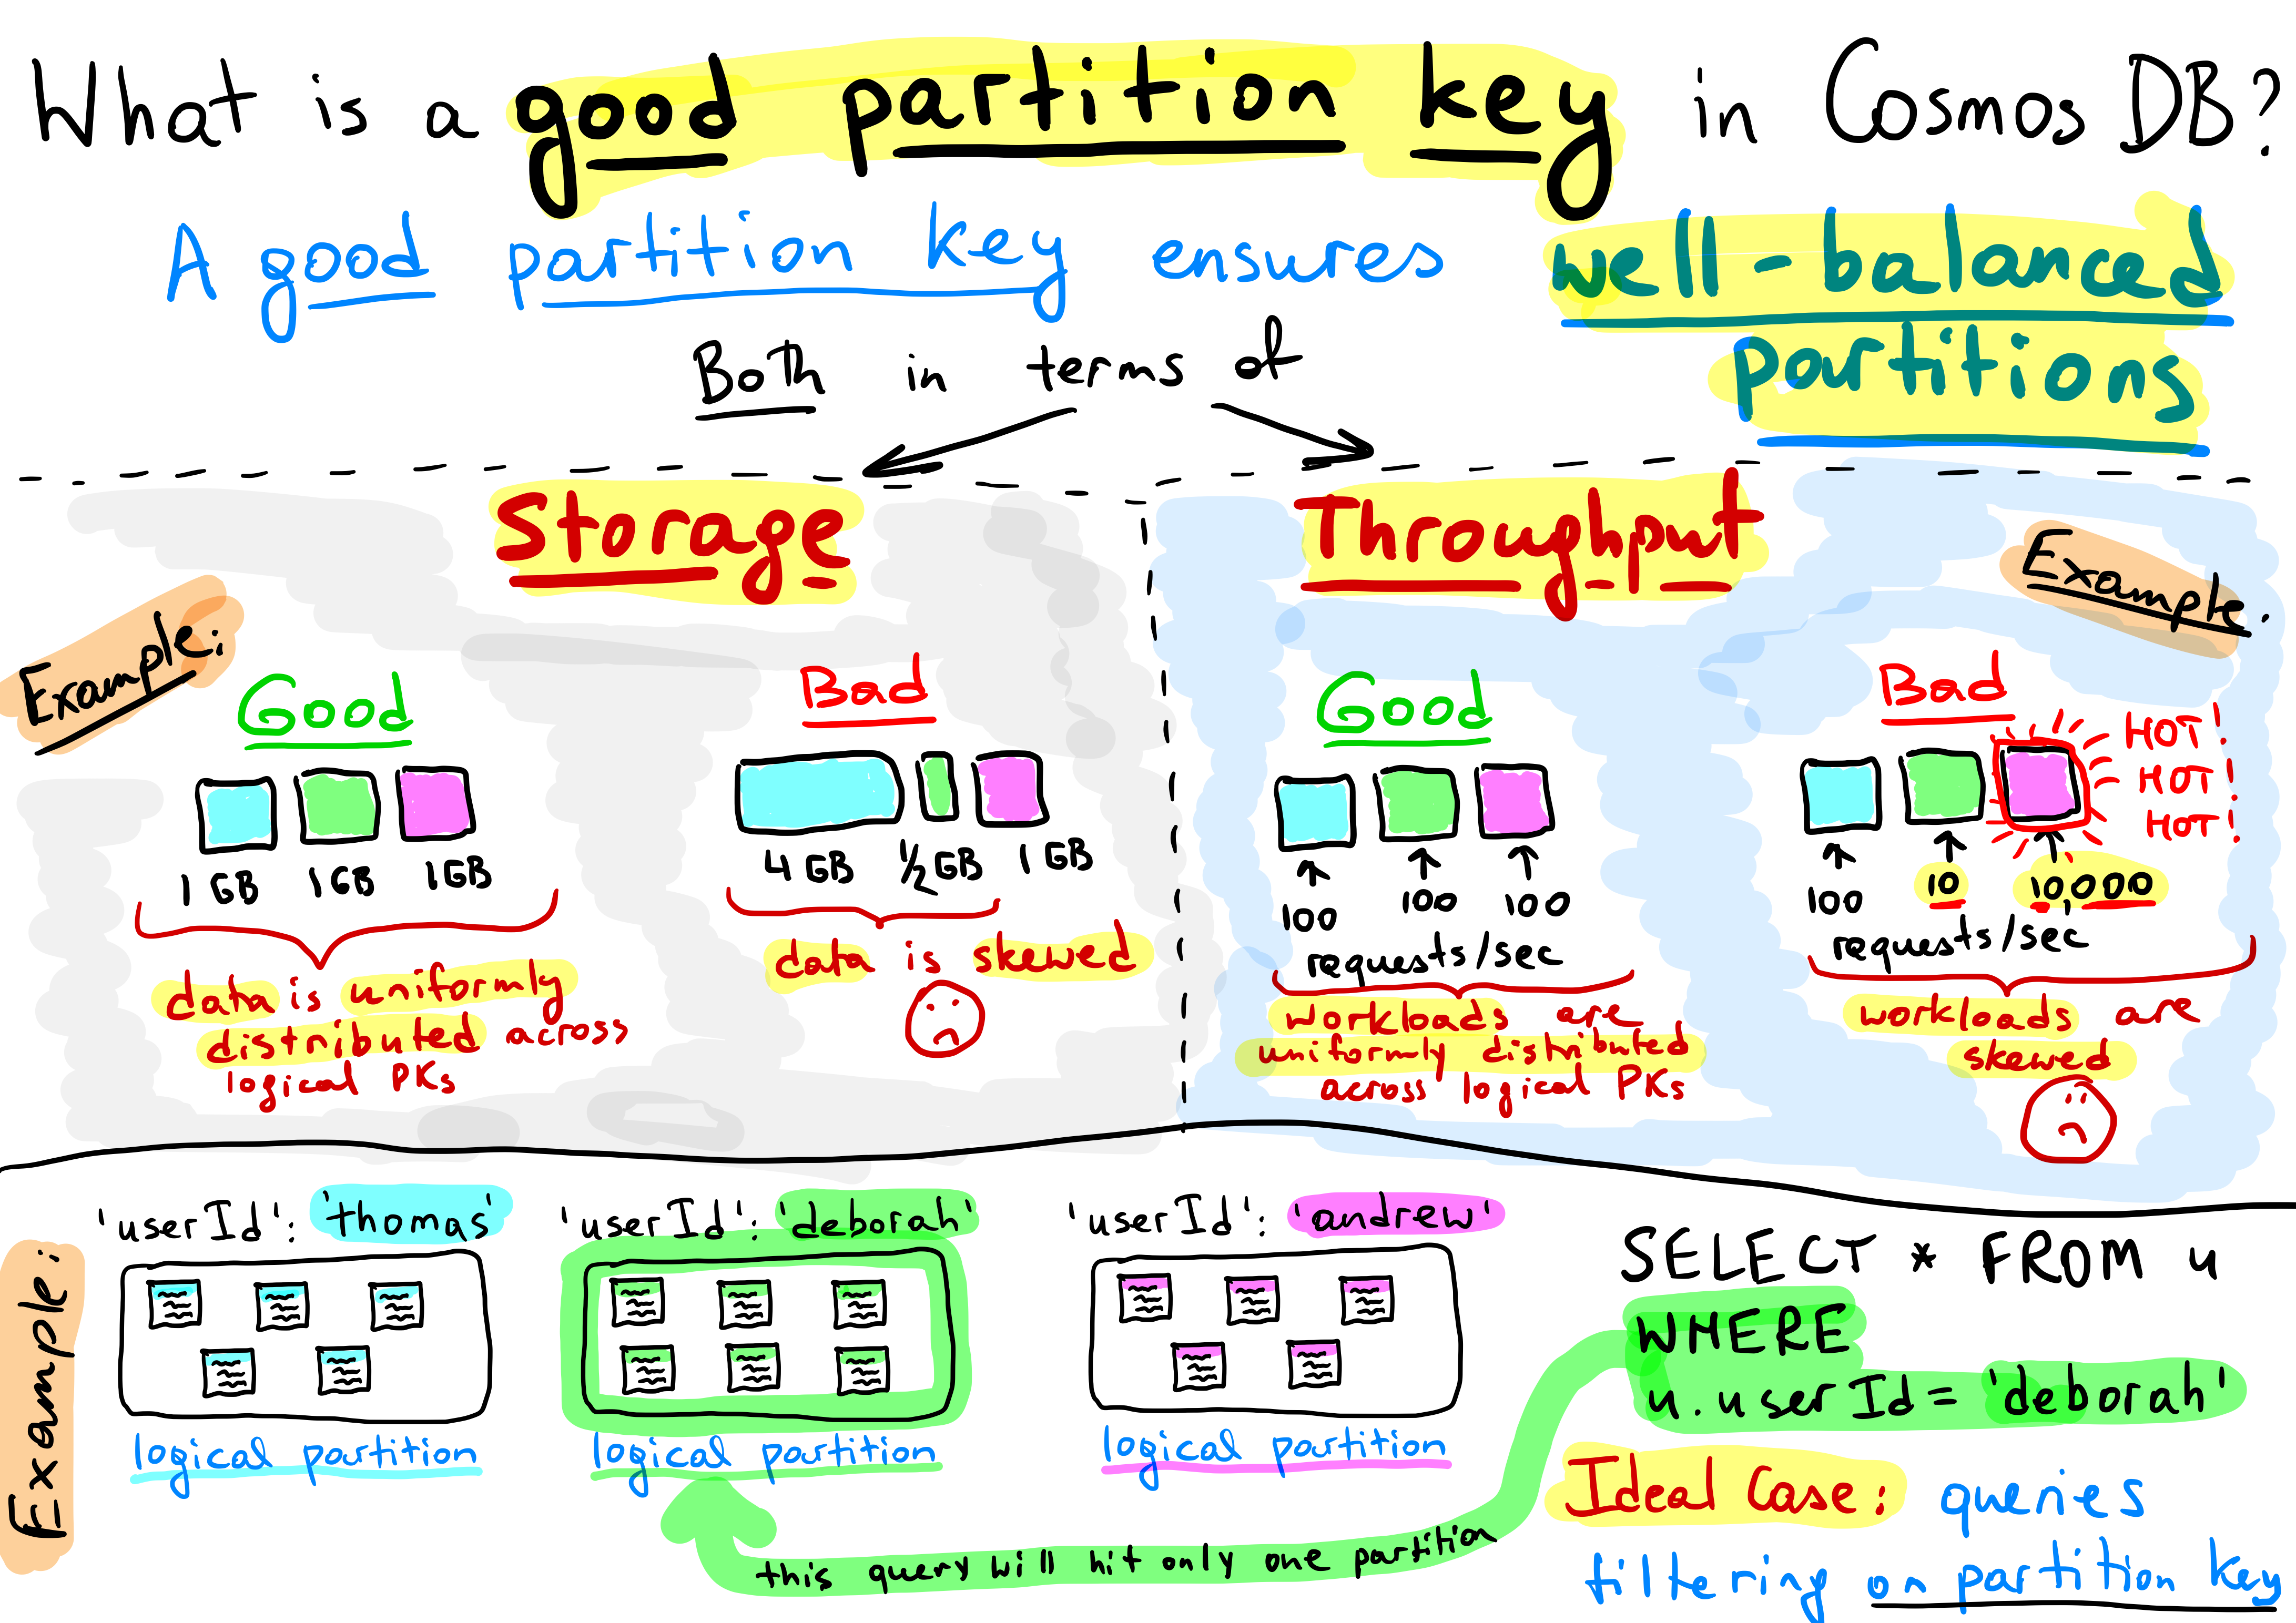 What is a good partition key in Cosmos DB?
A good partition key ensures well-balanced
partitions
Both in terms of
Storage
Example:
Good
1 GB 1GB 1GB
data is uniformly
distributed across
logical PKs
Bad
4 GB 1/2 GB 1 GB
data is skewed
Throughput
Example.
Good
100 100 100
requests/sec
workloads are
uniformly distributed
across logical PKs
Bad
HOT!
HOT!
HOT!
100 10 10,000
requests/sec
workloads are
skewed
Example:
'userId': 'thomas'
logical partition
'userId': 'deborah'
logical partition
'userId': 'andrew'
logical partition
SELECT * FROM u
WHERE
u.userId = 'deborah'
this query will hit only one partition
Ideal Case: queries
filtering on partition key